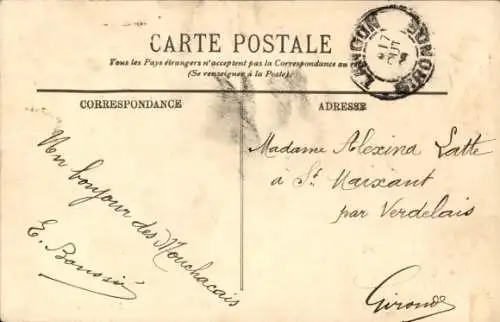 CARTE POSTALE
Tous les Pays étrangers n'acceptent pas la Correspondance au
(Se renseigner à la Poste).
CORRESPONDANCE
ADRESSE
LANGON
GIRONDE
17
Un bonjour des Mouchacais
E.
Madame Alexina Latte
à St Maixant
par Verdelais
Gironde